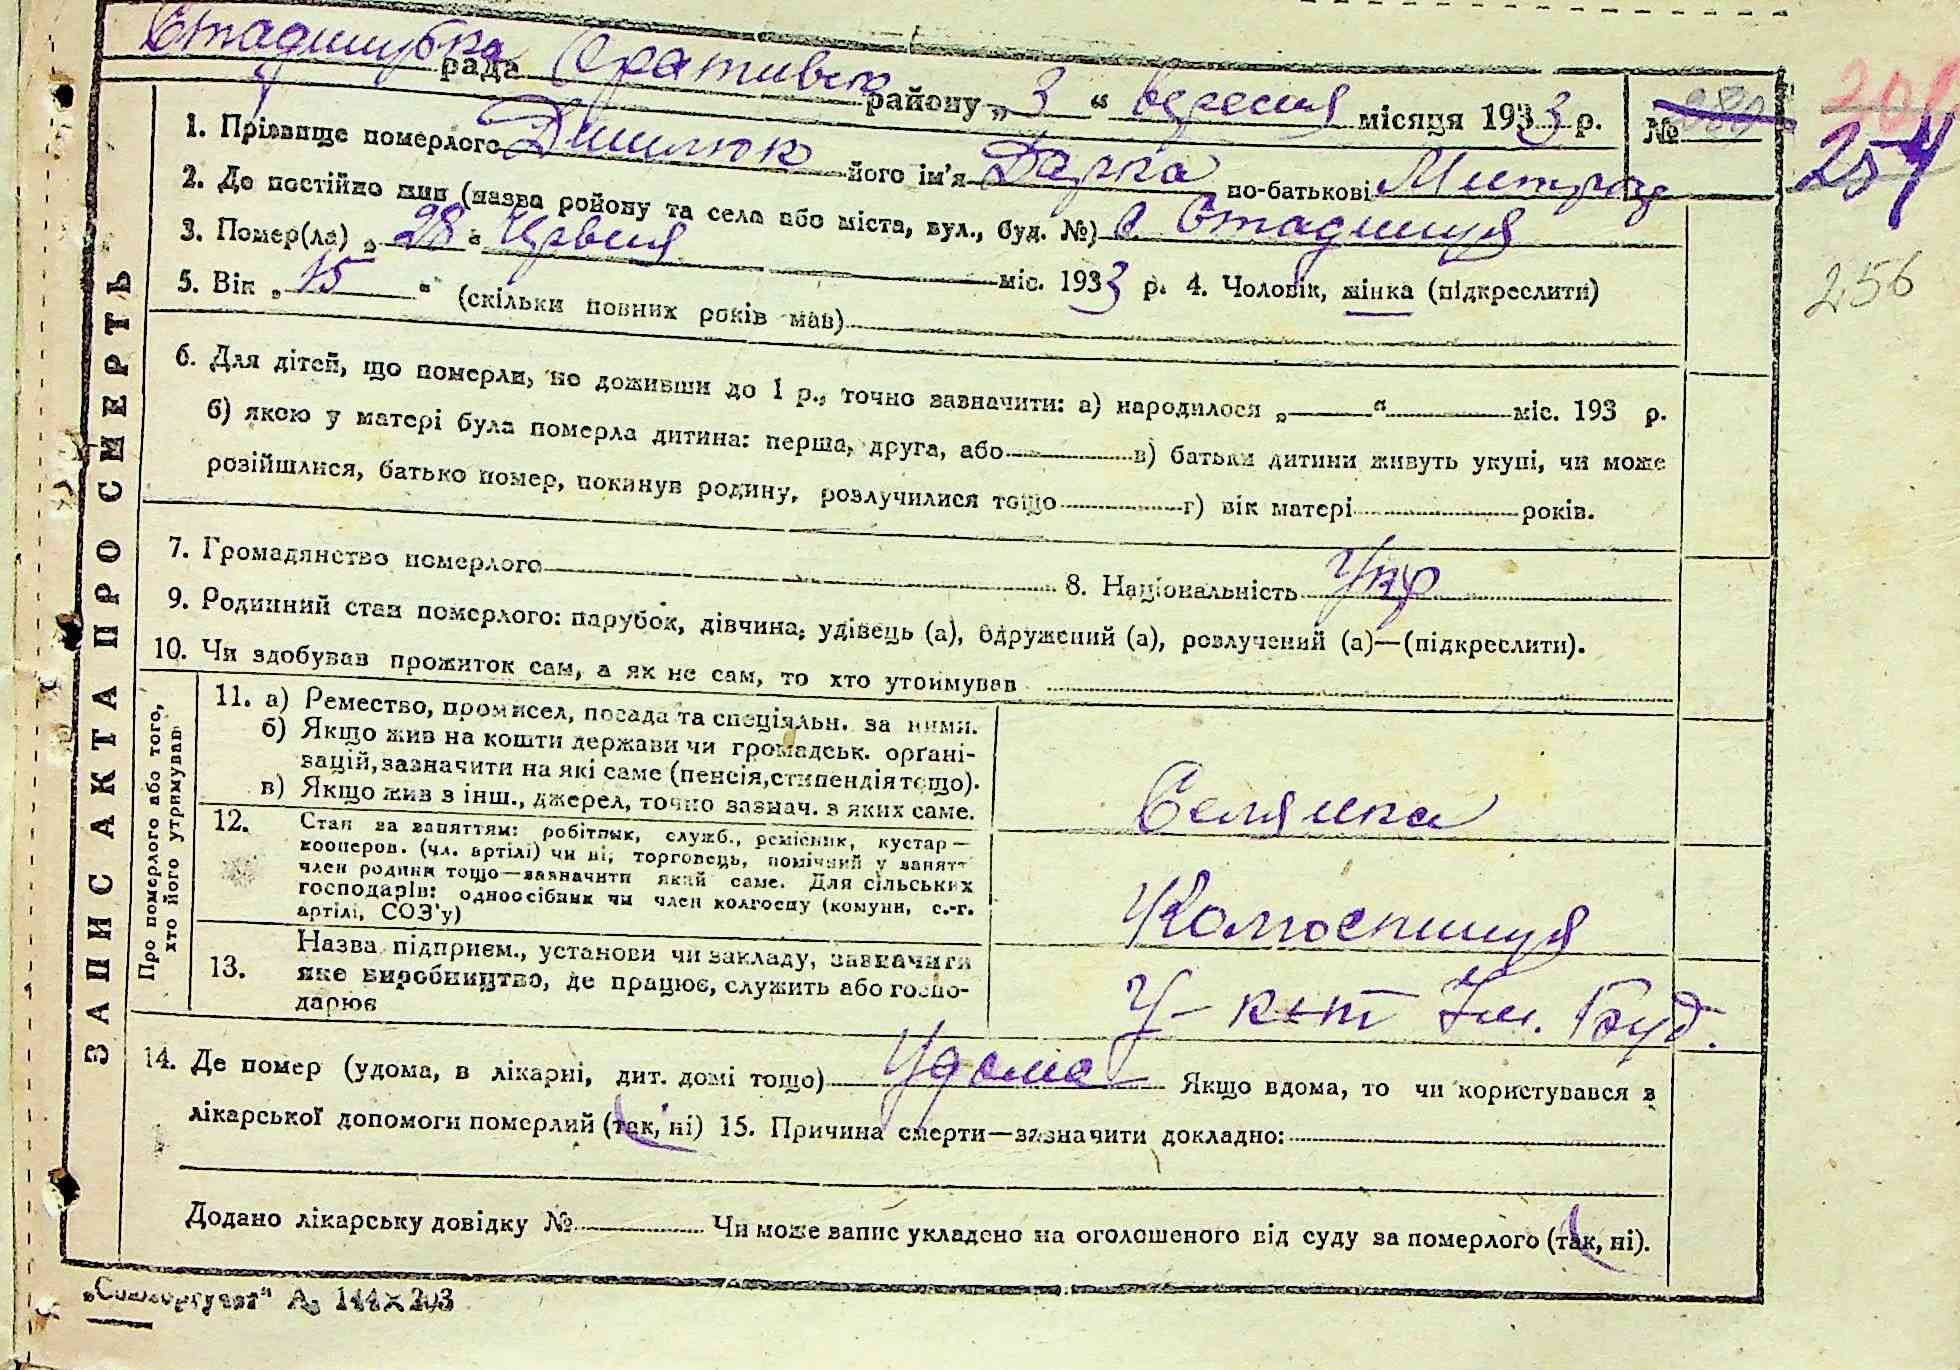 рада Оратівськ району „3“ вересня місяця 1933 р. №
254
1. Прізвище померлого його ім'я Дарка по-батькові
256
2. Де постійно жив (назва району та села або міста, вул., буд. №) с. Стадниця
3. Помер(ла) „28“ Червня міс. 1933 р. 4. Чоловік, жінка (підкреслити)
5. Вік „15“ (скільки повних років мав)
6. Для дітей, що померли, не доживши до 1 р., точно зазначити: а) народилося „ “ міс. 193 р.
б) якою у матері була померла дитина: перша, друга, або в) батьки дитини живуть укупі, чи може
розійшлися, батько помер, покинув родину, розлучилися тощо г) вік матері років.
7. Громадянство померлого 8. Національність Укр
9. Родинний стан померлого: парубок, дівчина, удівець (а), одружений (а), розлучений (а)—(підкреслити).
10. Чи здобував прожиток сам, а як не сам, то хто утримував
ЗАПИС АКТА ПРО СМЕРТЬ
Про померлого або того,
хто його утримував:
11. а) Ремество, промисел, посада та спеціяльн. за ними.
б) Якщо жив на кошти держави чи громадськ. органі-
зацій, зазначити на які саме (пенсія, стипендія тощо).
в) Якщо жив з інш., джерел, точно зазнач. з яких саме.
Селянка
12. Стан за заняттям: робітник, служб., ремісник, кустар—
кооперов. (чл. артілі) чи ні; торговець, помічний у занятт
член родини тощо—зазначити який саме. Для сільських
господарів: одноосібник чи член колгоспу (комуни, с.-г.
артілі, СОЗ'у)
Колгоспниця
13. Назва підприєм., установи чи закладу, зазначити
яке виробництво, де працює, служить або госпо-
дарює
У-
14. Де помер (удома, в лікарні, дит. домі тощо) Удома Якщо вдома, то чи користувався з
лікарської допомоги померлий (так, ні) 15. Причина смерти—зазначити докладно:
Додано лікарську довідку № Чи може запис укладено на оголошеного від суду за померлого (так, ні).
144×203